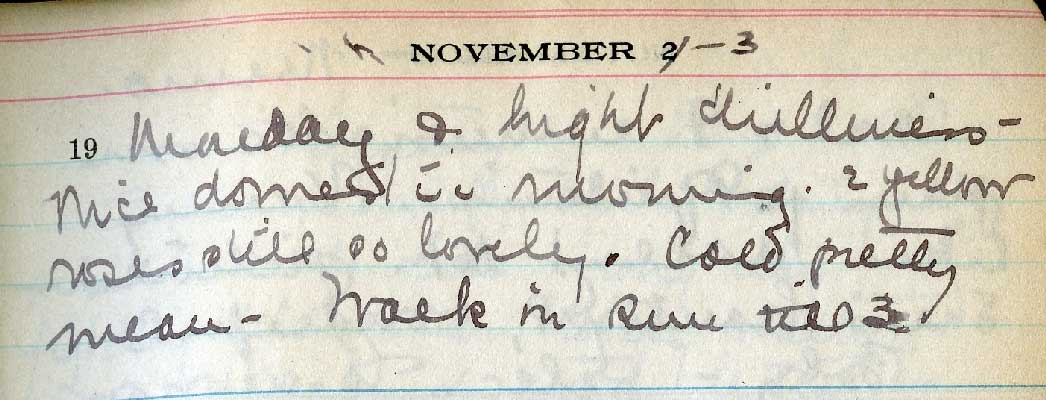 NOVEMBER 2/-3
19 Monday & bright stillness-
Nice domestic morning. 2 yellow
roses still so lovely. Cold pretty
mean- Walk in sun till 3